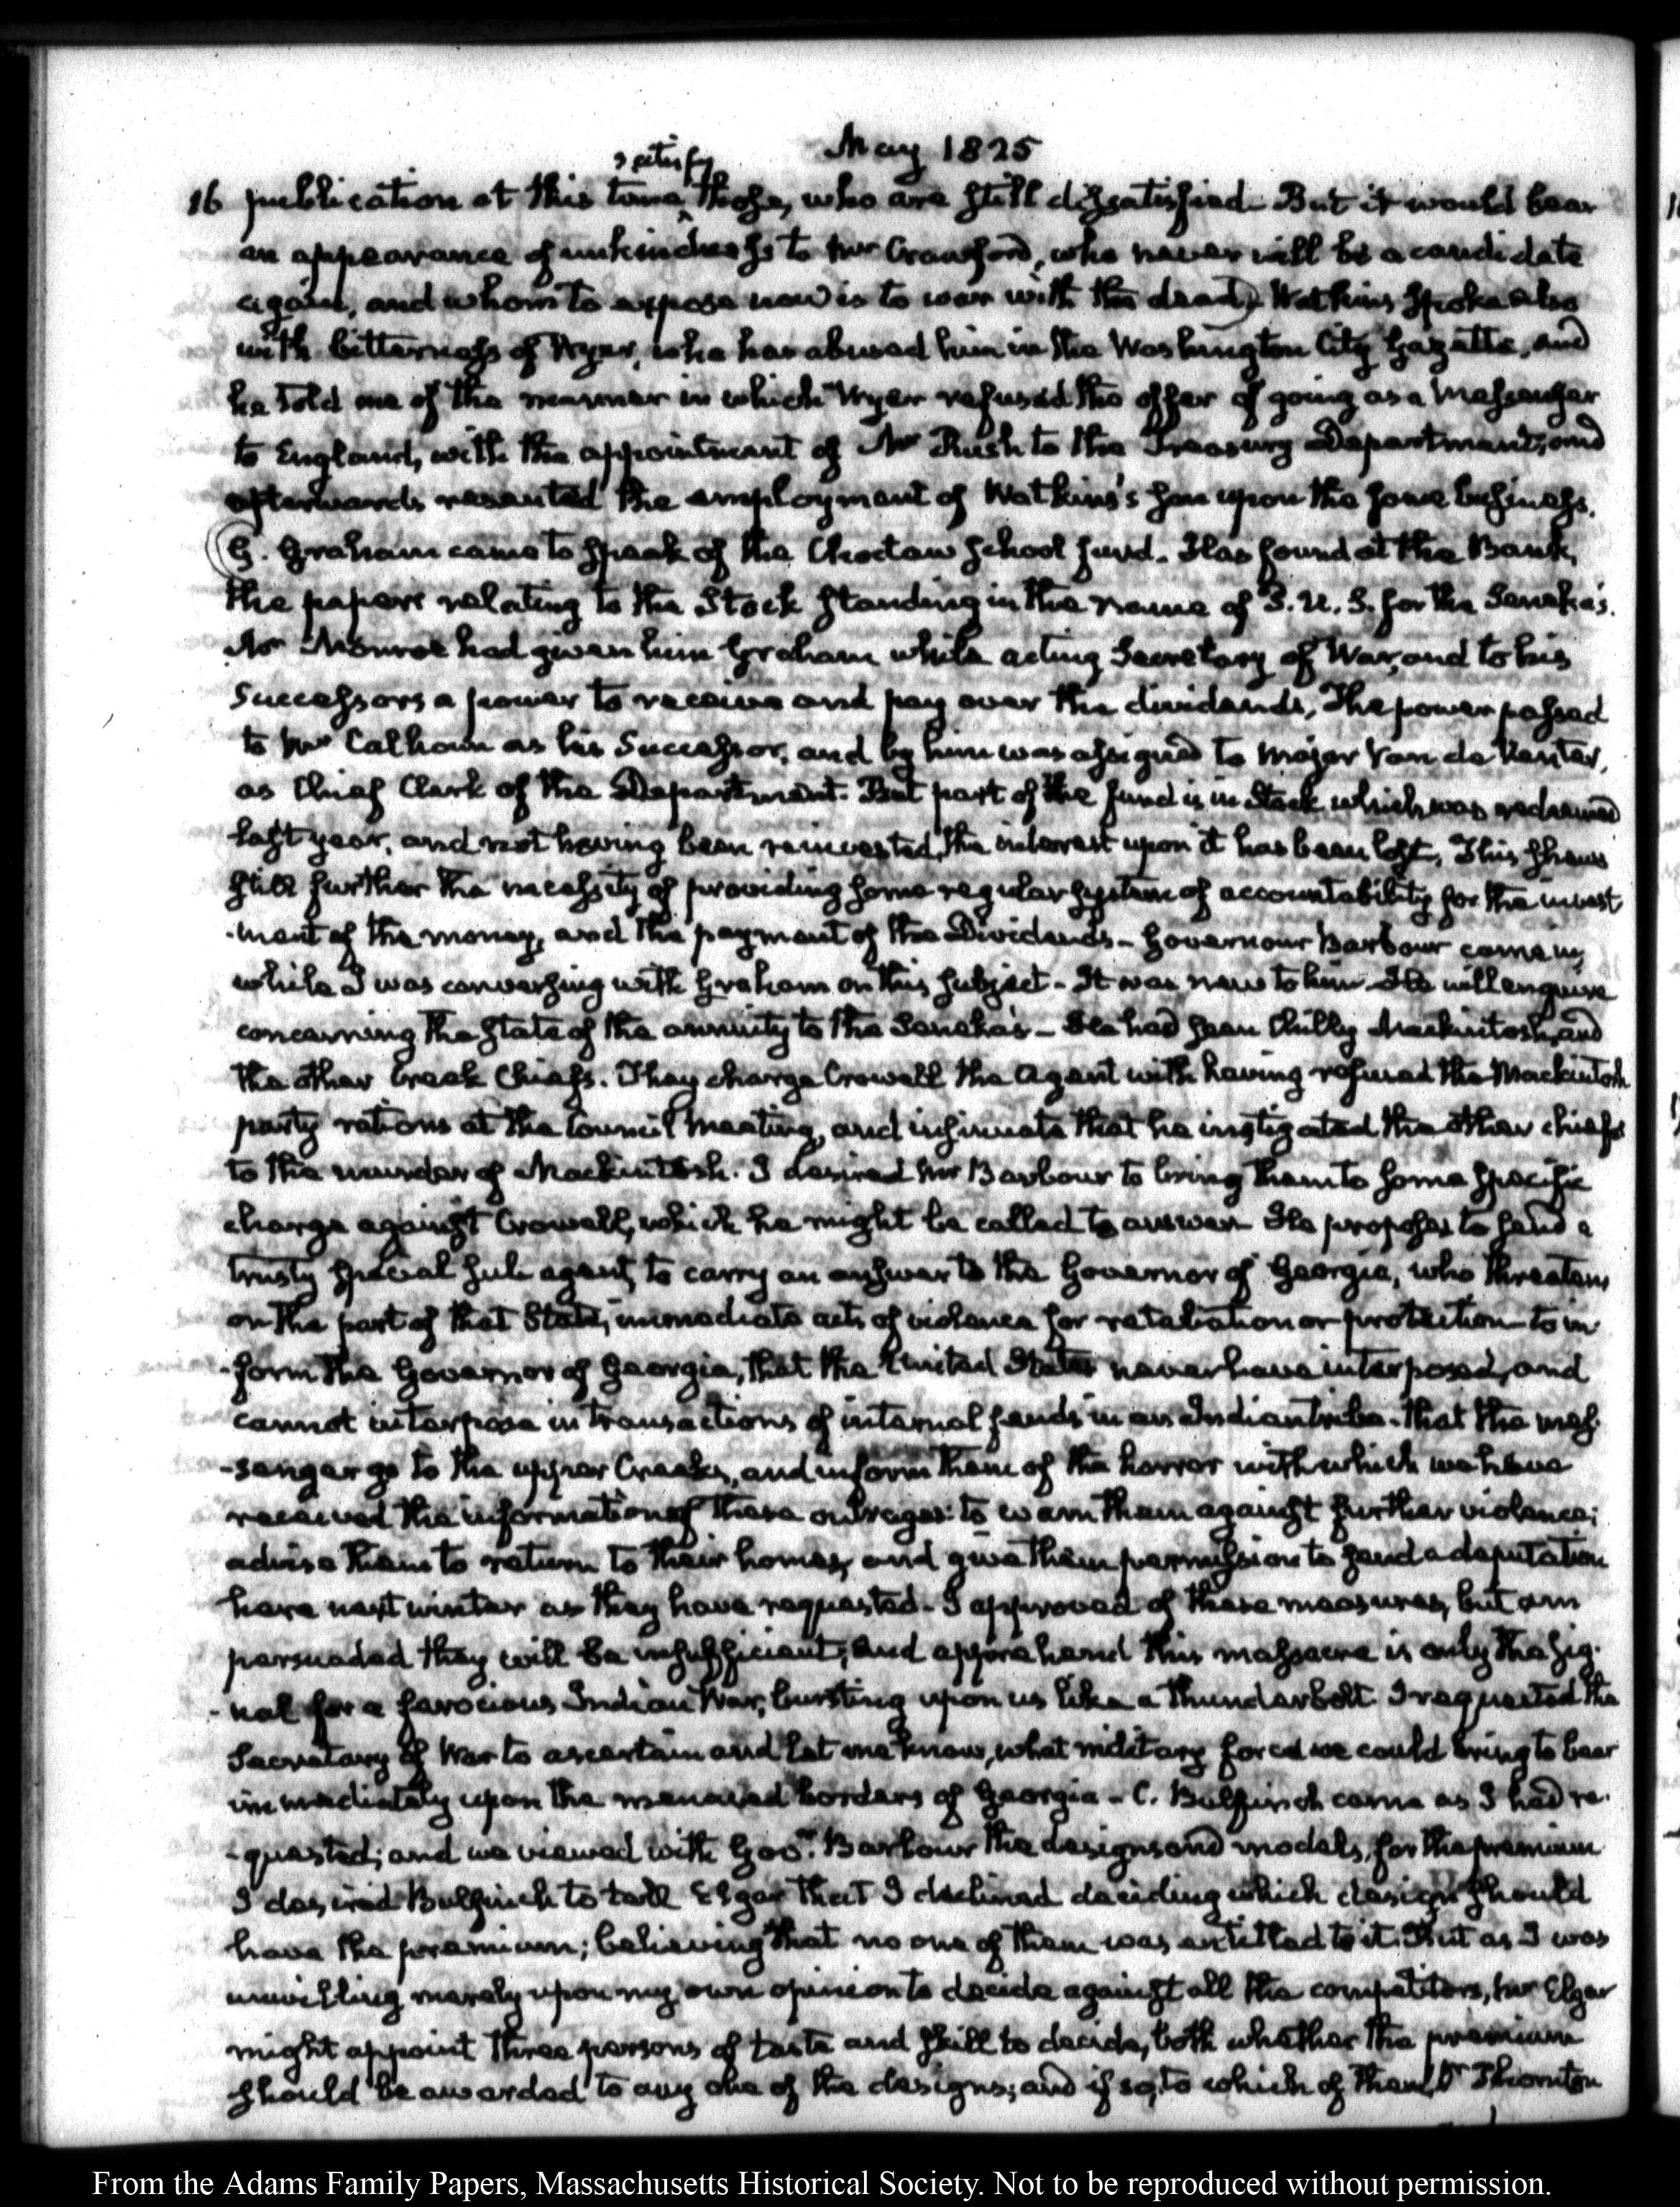 May 1825
satisfy
16 publication at this time, those, who are still dissatisfied. But it would bear
an appearance of unkindness to Mr Crawford, who never will be a candidate
again, and whom to expose now is to war with the dead) Watkins spoke also
with bitterness of Wyer, who has abused him in the Washington City Gazette, and
he told me of the manner in which Wyer refused the offer of going as a Messenger
to England, with the appointment of Mr Rush to the Treasury Department, and
afterwards resented the employment of Watkins's son upon the same business.
(G. Graham came to speak of the Choctaw School fund. Has found at the Bank,
the papers relating to the Stock standing in the name of P. U. S. for the Seneka's.
Mr Monroe had given him Graham while acting Secretary of War, and to his
Successors a power to receive and pay over the dividends, The power passed
to Mr Calhoun as his Successor, and by him was assigned to Major Van de Venter,
as Chief Clerk of the Department. But part of the fund is in Stock which was redeemed
last year, and not having been reinvested, the interest upon it has been lost, This shews
still further the necessity of providing some regular system of accountability for the invest
-ment of the money, and the payment of the Dividends- Governour Barbour came in,
while I was conversing with Graham on this subject- It was new to him- He will enquire
concerning the state of the annuity to the Seneka's- He had seen Chilly Mackintosh, and
the other Creek Chiefs. They charge Crowell the Agent with having refused the Mackintosh
party rations at the Council Meeting, and insinuate that he instigated the other chiefs
to the murder of Mackintosh. I desired Mr Barbour to bring them to some specific
charge against Crowell, which he might be called to answer He proposes to send a
trusty special sub agent, to carry an answer to the Governor of Georgia, who threatens
on the part of that State, immediate acts of violence for retaliation or protection- to in
-form the Governor of Georgia, that the United States never have interposed, and
cannot interpose in transactions of internal feuds in an Indian tribe- that the mes
-senger go to the upper Creeks, and inform them of the horror with which we have
received the information of these outrages: to warn them against further violence;
advise them to return to their homes, and give them permission to send a deputation
here next winter as they have requested- I approved of these measures, but am
persuaded they will be insufficient; and apprehend this massacre is only the sig-
-nal for a ferocious Indian War, bursting upon us like a thunderbolt I requested the
Secretary of War to ascertain and let me know, what military force we could bring to bear
immediately upon the menaced borders of Georgia- C. Bulfinch came as I had re-
-quested; and we viewed with Govr. Barbour the designs and models, for the premium
I desired Bulfinch to tell Elgar that I declined deciding which design should
have the premium; believing that no one of them was entitled to it. But as I was
unwilling merely upon my own opinion to decide against all the competitors, Mr Elgar
might appoint three persons of taste and skill to decide, both whether the premium
should be awarded to any one of the designs; and if so, to which of them. Dr Thornton
From the Adams Family Papers, Massachusetts Historical Society. Not to be reproduced without permission.